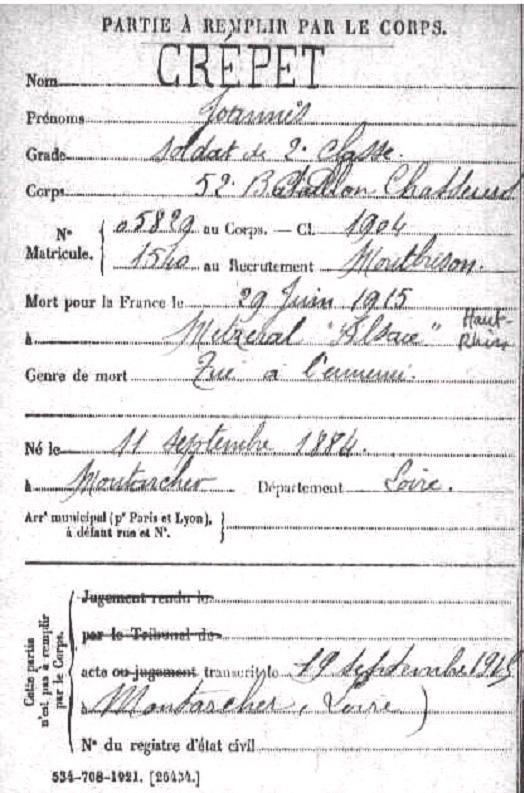 PARTIE À REMPLIR PAR LE CORPS.
Nom CRÉPET
Prénoms Joannès
Grade soldat de 2e classe.
Corps 52e Bataillon Chasseurs
N° Matricule. 05829 au Corps. — Cl. 1904
1540 au Recrutement Montbrison.
Mort pour la France le 29 Juin 1915
à Metzeral "Alsace" Haut-Rhin
Genre de mort Tué à l'ennemi.
Né le 11 septembre 1884.
à Montarcher Département Loire.
Arrt municipal (pr Paris et Lyon), à défaut rue et N°.
Cette partie n'est pas à remplir par le Corps.
Jugement rendu le
par le Tribunal de
acte ou jugement transcrit le 19 septembre 1915
à Montarcher, Loire)
N° du registre d'état civil
534-708-1921. [26434.]